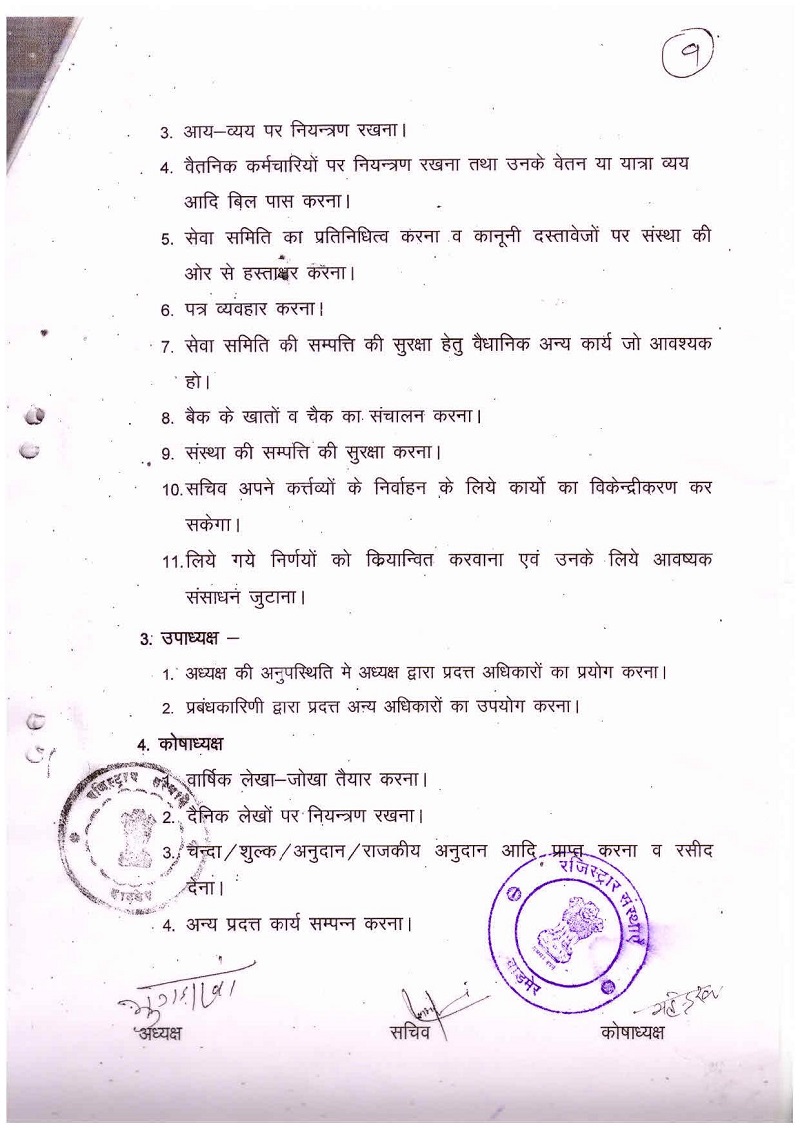 ९
3. आय–व्यय पर नियन्त्रण रखना।
4. वैतनिक कर्मचारियों पर नियन्त्रण रखना तथा उनके वेतन या यात्रा व्यय
आदि बिल पास करना।
5. सेवा समिति का प्रतिनिधित्व करना व कानूनी दस्तावेजों पर संस्था की
ओर से हस्ताक्षर करना।
6. पत्र व्यवहार करना।
7. सेवा समिति की सम्पत्ति की सुरक्षा हेतु वैधानिक अन्य कार्य जो आवश्यक
हो।
8. बैक के खातों व चैक का संचालन करना।
9. संस्था की सम्पत्ति की सुरक्षा करना।
10.सचिव अपने कर्त्तव्यों के निर्वाहन के लिये कार्यो का विकेन्द्रीकरण कर
सकेगा।
11.लिये गये निर्णयों को कियान्वित करवाना एवं उनके लिये आवष्यक
संसाधन जुटाना।
3. उपाध्यक्ष –
1. अध्यक्ष की अनुपस्थिति मे अध्यक्ष द्वारा प्रदत्त अधिकारों का प्रयोग करना।
2. प्रबंधकारिणी द्वारा प्रदत्त अन्य अधिकारों का उपयोग करना।
4. कोषाध्यक्ष
वार्षिक लेखा–जोखा तैयार करना।
2. दैनिक लेखों पर नियन्त्रण रखना।
3. चन्दा/शुल्क/अनुदान/राजकीय अनुदान आदि प्राप्त करना व रसीद
देना।
4. अन्य प्रदत्त कार्य सम्पन्न करना।
रजिस्ट्रार संस्थायें
बाड़मेर
रजिस्ट्रार संस्थाएँ
बाड़मेर
अध्यक्ष सचिव कोषाध्यक्ष